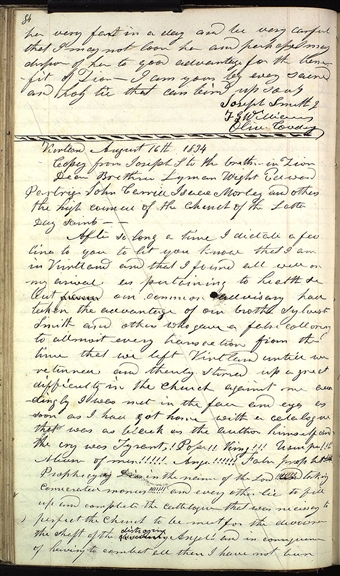 84
her very fast in a day and be very careful
that I may not loose her and perhaps I may
dispose of her to good advantage for the bene-
fit of Zion— I am yours by every sacred
and holy tie that can bind up souls
Joseph Smith J
F G Williams
Oliver Cowdery
Kirtland August 16th 1834
Copy from Joseph S to the brethren in Zion
Dear Brethren Lyman Wight Edward
Partrige John Carrill Isaac Morley and others
the high council of the Church of the Latter
Day Saints—
After so long a time I dictate a few
lines to you to let you know that I am
in Kirtland and that I found all well on
my arival as pertaining to health &c
but our common advisary had
taken the advantage of our brother Sylvester
Smith and others who gave a false colloring
to allmost every transaction from the
time that we left Kirtland untill we
returned and thereby stirred up a great
difficulty in the Church against me accor
dingly I was met in the face and eyes as
soon as I had got home with a catalogue
that was as black as the author himself and
the cry was Tyrant,!! Pope!! King!!! Usurper!!!!
Abuser of men!!!!! Ange!!!!!! False prophet
Prophecying in the name of the Lord taking
consecrated monies!!!!!! and every other lie to fill
up and complete the catalogue that was necessary to
perfect the Church to be meet for the devourer
the shaft of the distroying Angel! and in consequence
of having to combat all these I have not been